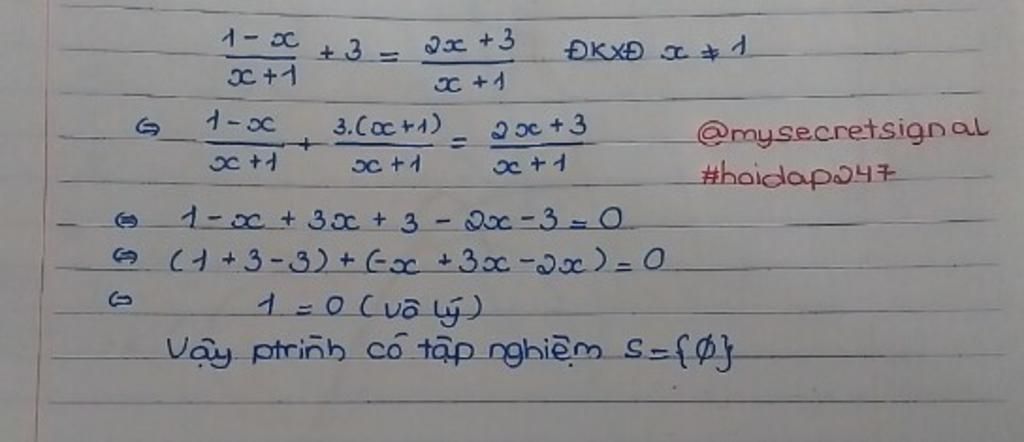 (1-x)/(x+1) + 3 = (2x+3)/(x+1) ĐKXĐ x ≠ 1
⇔ (1-x)/(x+1) + 3.(x+1)/(x+1) = (2x+3)/(x+1)
@mysecretsignal
#hoidap247
⇔ 1-x + 3x + 3 - 2x-3 = 0
⇔ (1+3-3) + (-x +3x-2x) = 0
⇔ 1 = 0 (vô lý)
Vậy ptrình có tập nghiệm S={∅}